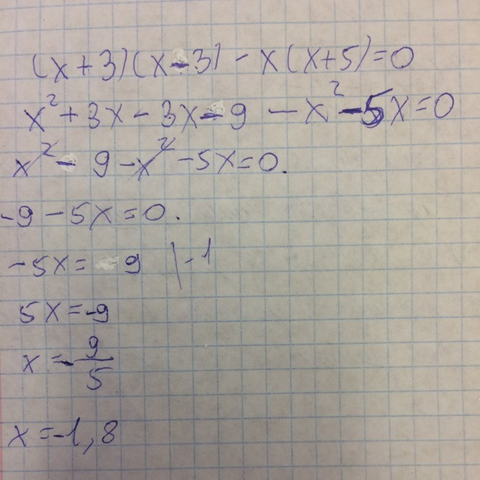 (x+3)(x-3) - x(x+5)=0
x²+3x-3x-9 -x²-5x=0
x²-9-x²-5x=0.
-9-5x=0.
-5x= 9 |-1
5x=-9
x=-9/5
x=-1,8